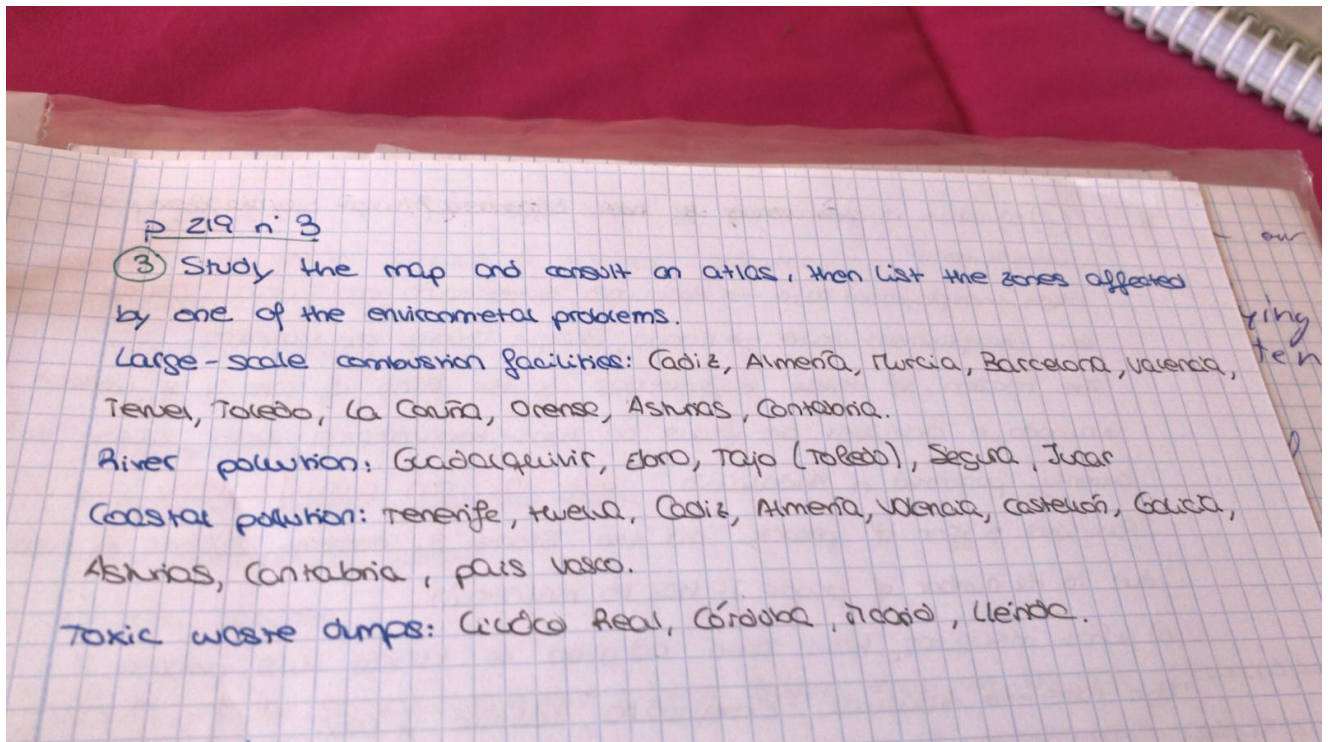 p 219 nº 3
③ Study the map and consult an atlas, then list the zones affected
by one of the enviromental problems.
Large-scale combustion facilities: Cadiz, Almería, Murcia, Barcelona, Valencia,
Teruel, Toledo, La Coruña, Orense, Asturias, Cantabria.
River pollution: Guadalquivir, Ebro, Tajo (Toledo), Segura, Jucar
Coastal pollution: Tenerife, Huelva, Cadiz, Almería, Valencia, Castellón, Galicia,
Asturias, Cantabria, pais vasco.
Toxic waste dumps: Real, Córdoba, Lleida.
our
ying
ten